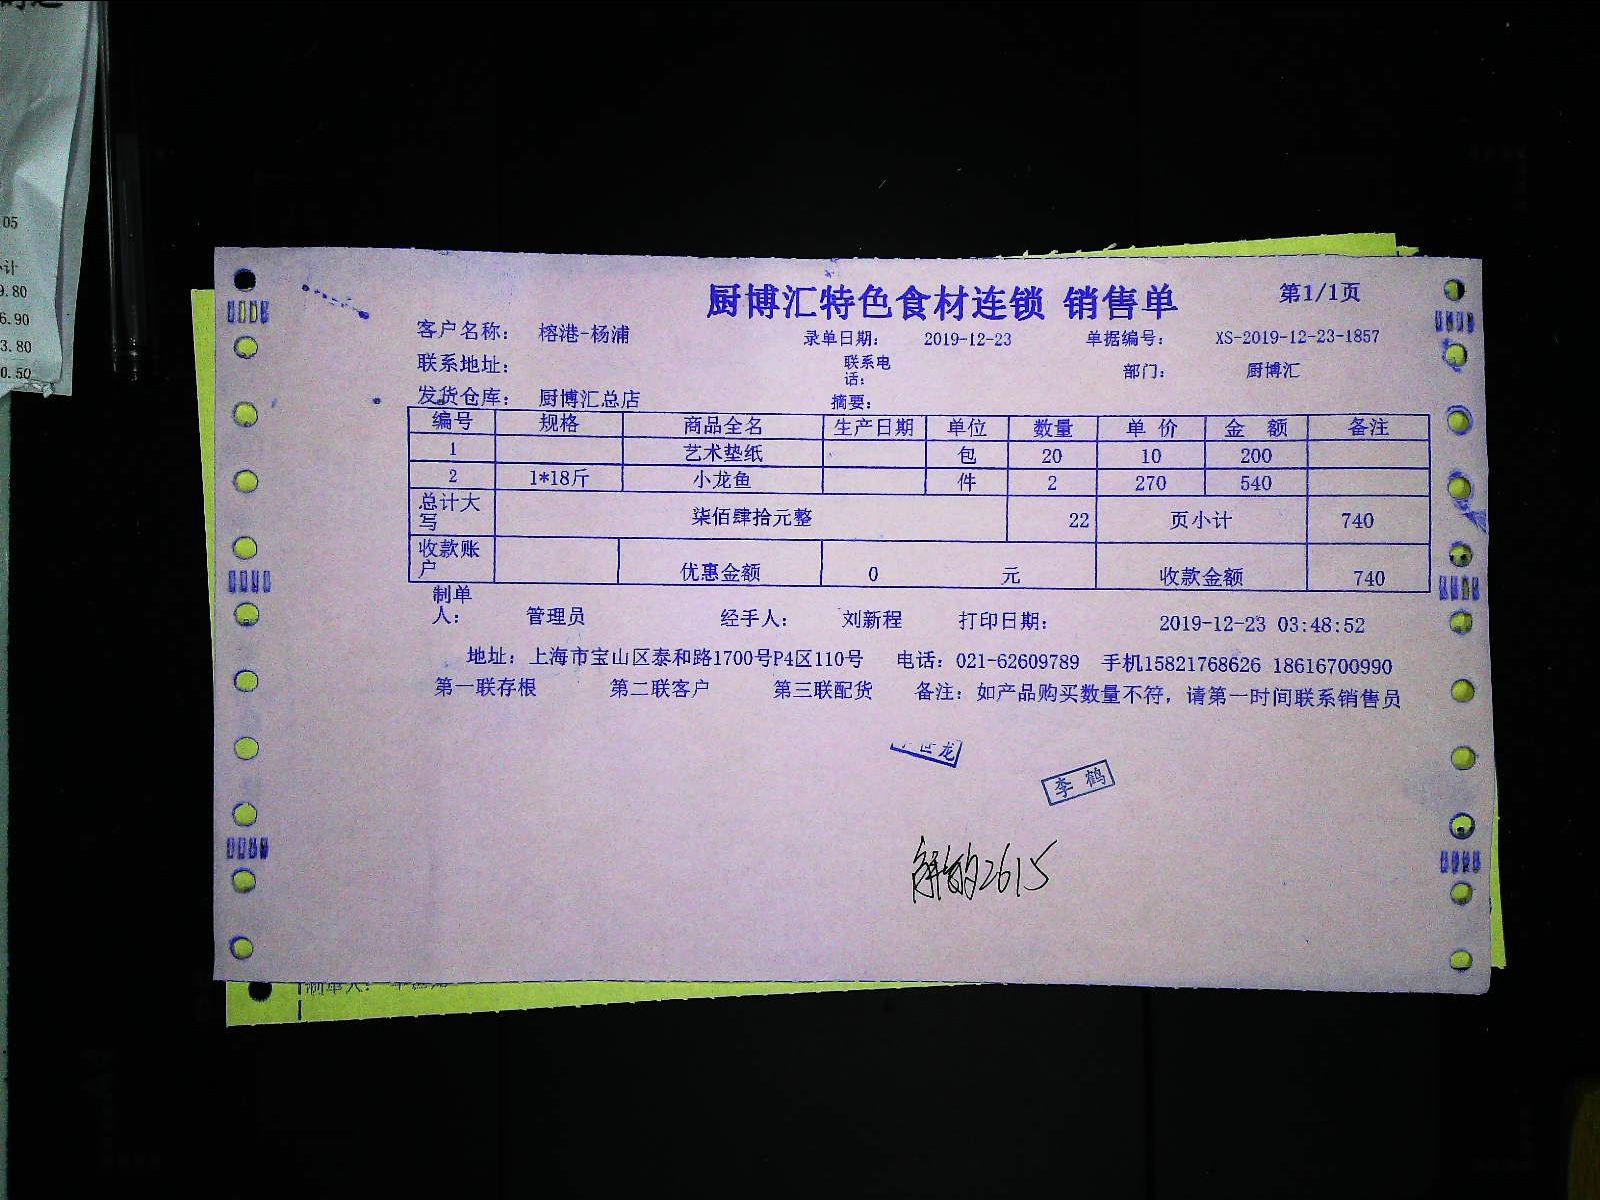 05
计
9.80
6.90
3.80
0.50
厨博汇特色食材连锁 销售单 第1/1页
客户名称： 榕港-杨浦 录单日期： 2019-12-23 单据编号： XS-2019-12-23-1857
联系地址： 联系电话： 部门： 厨博汇
发货仓库： 厨博汇总店 摘要：
编号 规格 商品全名 生产日期 单位 数量 单 价 金 额 备注
1 艺术垫纸 包 20 10 200
2 1*18斤 小龙鱼 件 2 270 540
总计大写 柒佰肆拾元整 22 页小计 740
收款账户 优惠金额 0 元 收款金额 740
制单人： 管理员 经手人： 刘新程 打印日期： 2019-12-23 03:48:52
地址：上海市宝山区泰和路1700号P4区110号 电话：021-62609789 手机15821768626 18616700990
第一联存根 第二联客户 第三联配货 备注：如产品购买数量不符，请第一时间联系销售员
世龙
李鹤
2615
制单人：